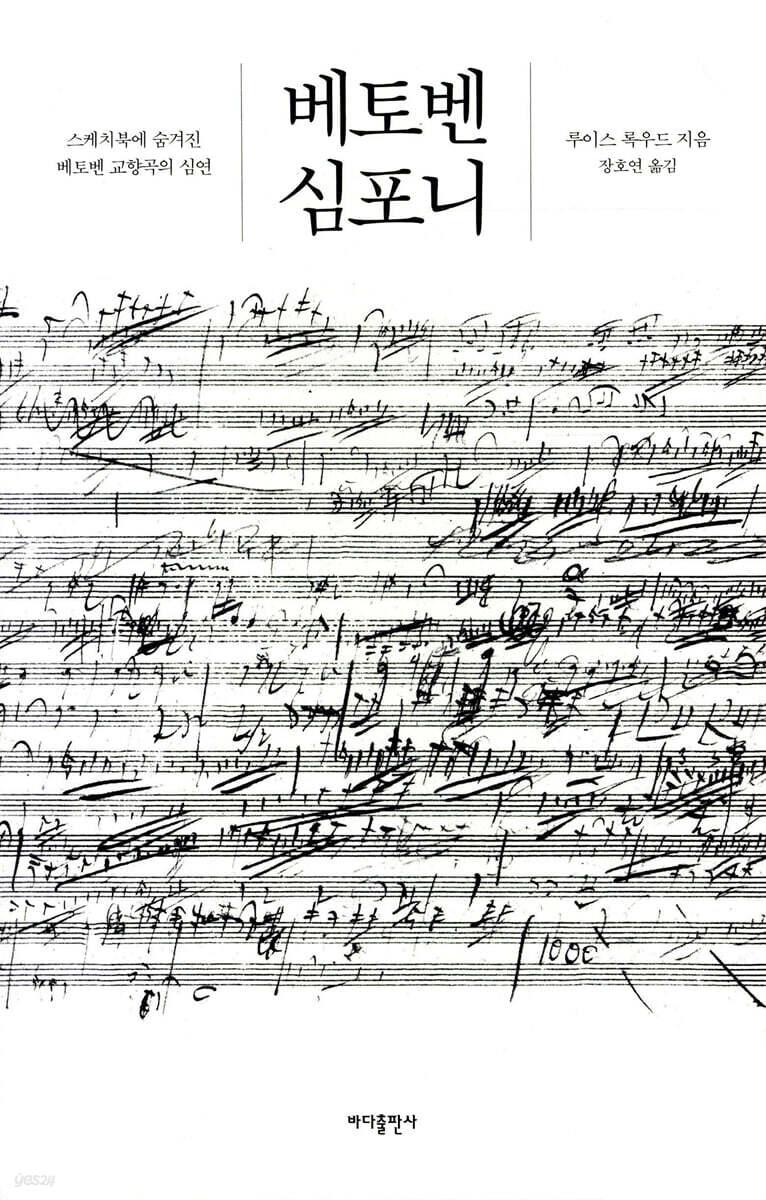 스케치북에 숨겨진
베토벤 교향곡의 심연
베토벤
심포니
루이스 록우드 지음
장호연 옮김
1000
바다출판사
yes24